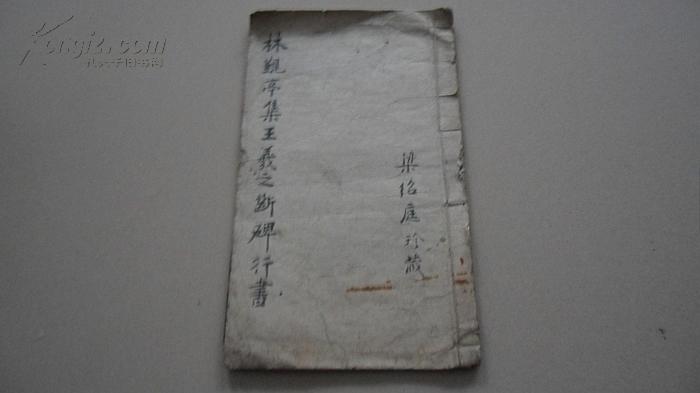 林觐亭集王羲之断碑行書
梁紹庭珍藏
Kongfz.com
孔夫子旧书网